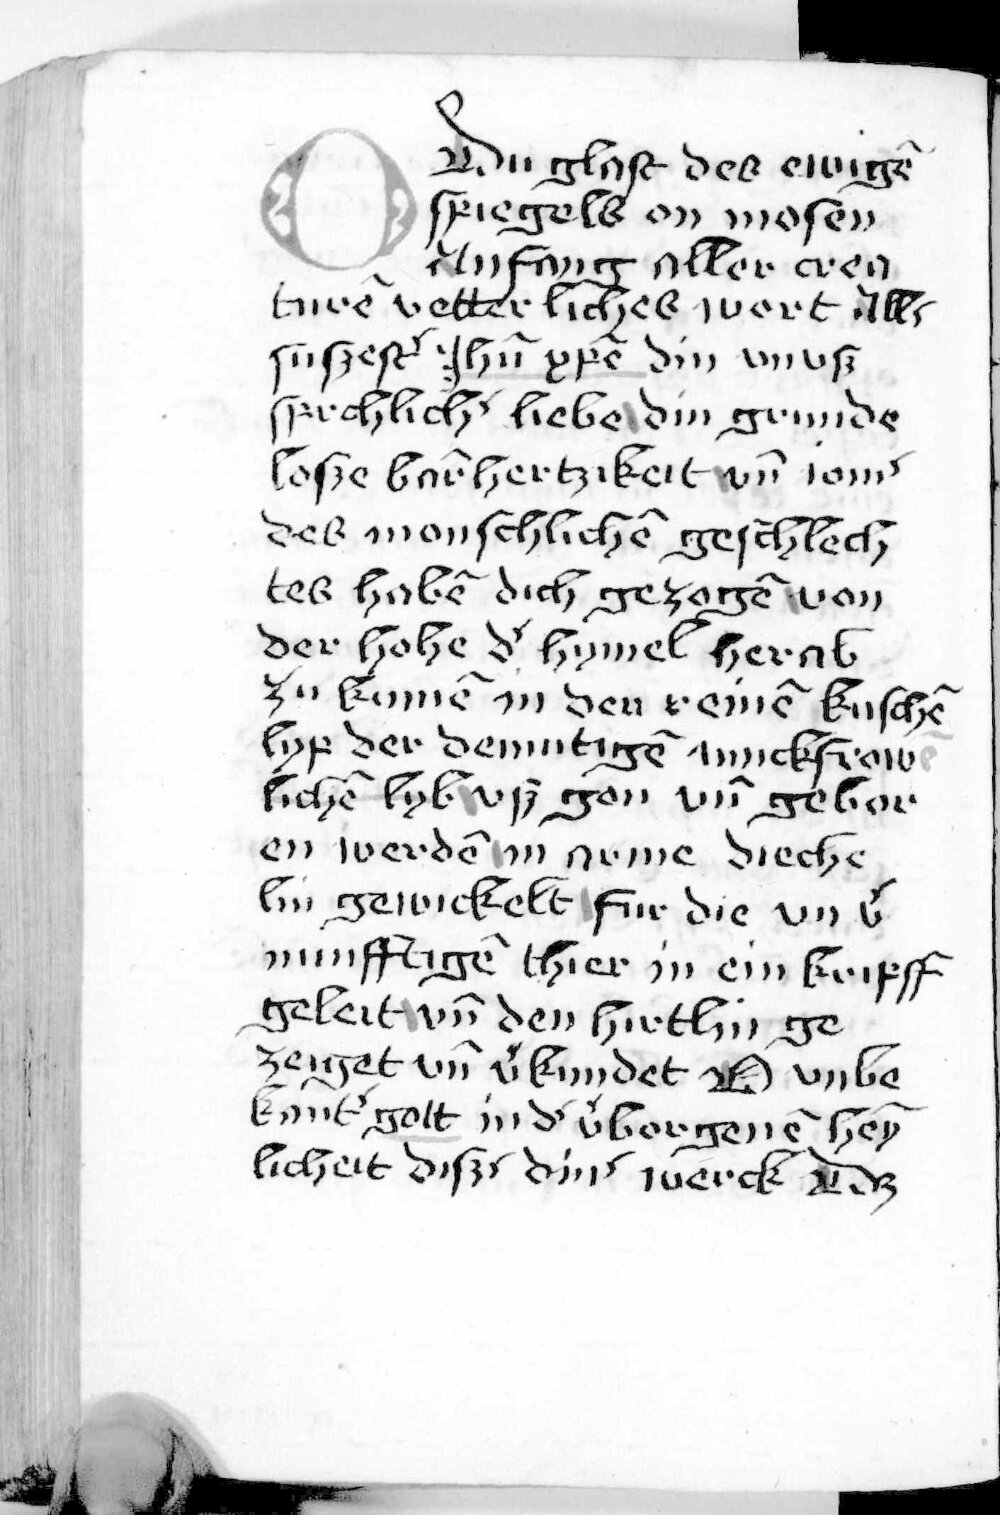 O Du glast des ewigē
spiegels on mosen
Anfang aller crea
turē vetterliches wort Alls
suszest' Jhū xpē din vnvsz
sprchlich' liebe din grunde
losze barmhertzikeit vn̄ iom'
des monschlichē geschlech
tes habē dich gezogē von
der hohe d' hymel herab
zu kumē in den reinē kuschē
lyp der demutigē iunckfrowē
lichē lyb vsz gon vn̄ gebor
en werdē in arme dieche
lin gewickelt fur die vn v'
nunfftigē thier in ein kripff
geleit vn̄ den hirtlin ge
zeiget vn̄ v'kundet O vnbe
kant' gott in d' v'borgenē hey
licheit disz' din' werck Du